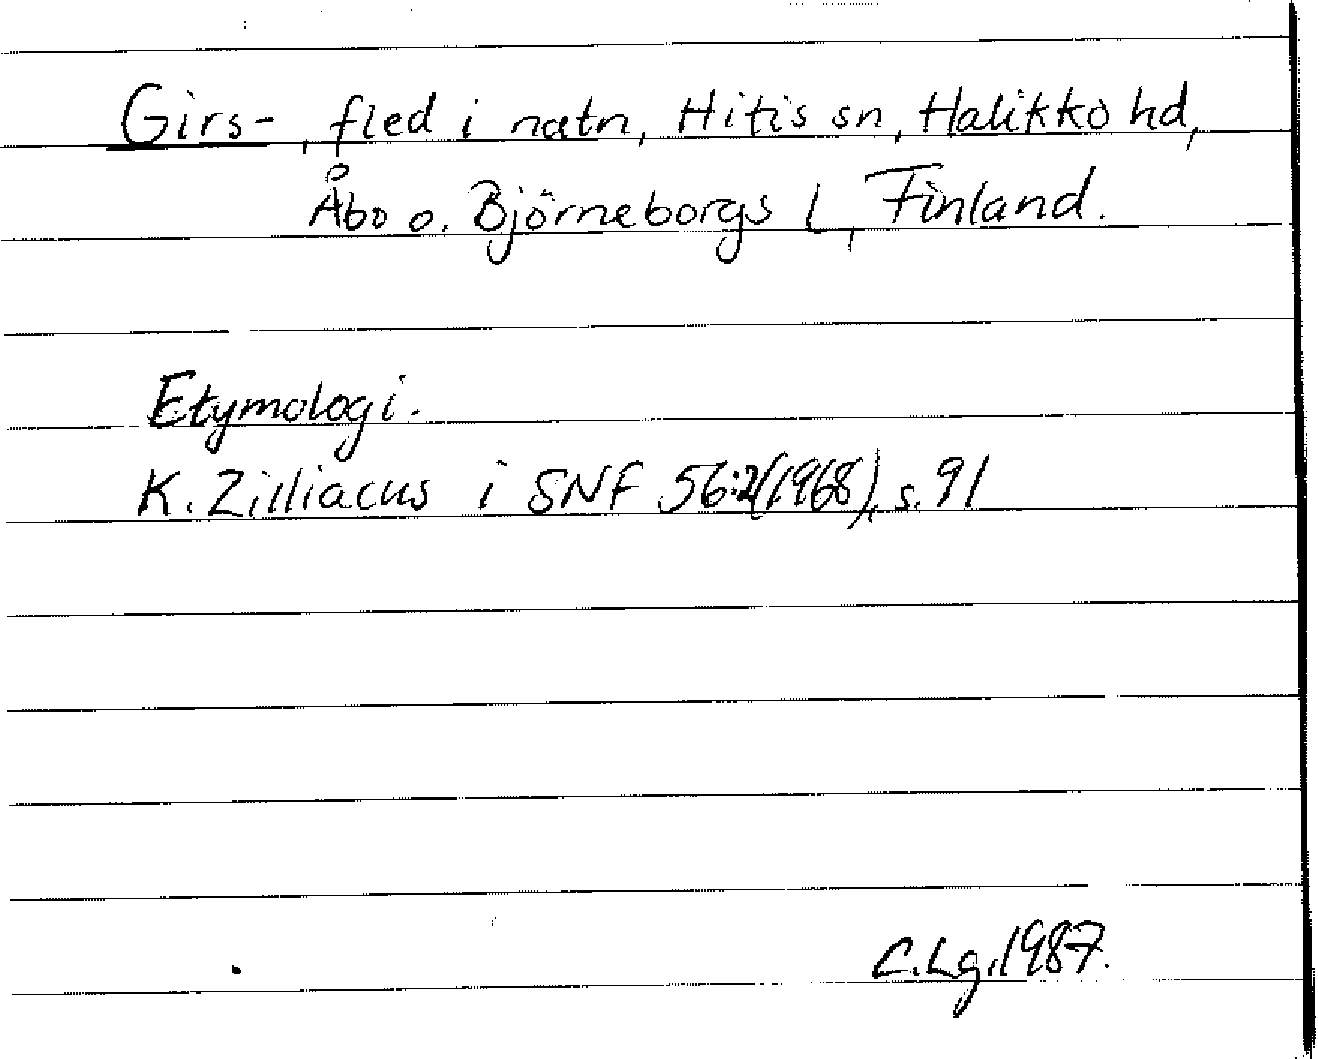 Girs-, fled i natn, Hitis sn, Halikko hd,
Åbo o. Björneborgs L, Finland.
Etymologi.
K. Zilliacus i SNF 56:2(1968), s. 91
C.Lg. 1987.